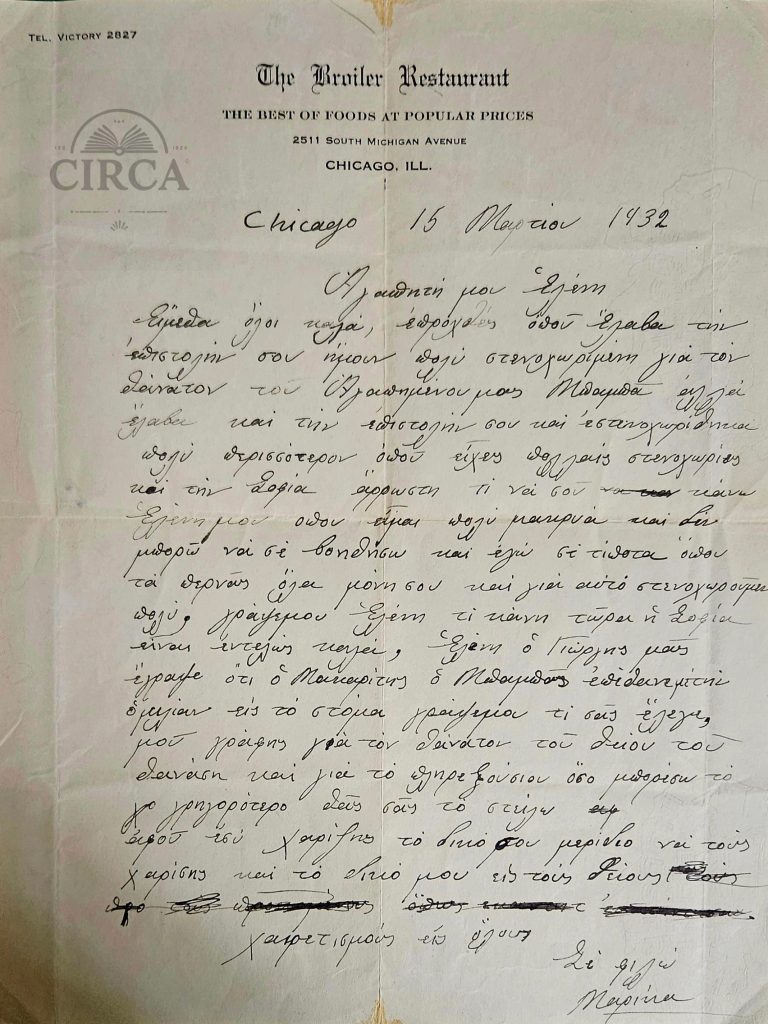 TEL. VICTORY 2827
The Broiler Restaurant
THE BEST OF FOODS AT POPULAR PRICES
2511 SOUTH MICHIGAN AVENUE
CHICAGO, ILL.
CIRCA
Chicago 15 Μαρτίου 1932
Ἀγαπητή μου Ἑλένη
Εἴμεθα ὅλοι καλά, ἐπροχθές ὁποῦ ἔλαβα τήν
ἐπιστολήν σου ἤμουν πολύ στενοχωριμένη γιά τόν
θάνατον τοῦ Ἀγαπημένου μας Μπαμπᾶ ἀλλά
ἔλαβα καί τήν ἐπιστολήν σου καί ἐστενοχωρίθηκα
πολύ περισσότερον ὁποῦ εἶχες πολλαίς στενοχωρίες
καί τήν Σοφία ἄρρωστη τί νά σοῦ κάνω
Ἑλένη μου οπου εἶμαι πολύ μακρυά και δέν
μπορῶ νά σέ βοηθήσω καί ἐγώ σέ τίποτα ὅπου
τά περνᾶς ὅλα μόνη σου καί γιά αὐτό στενοχωροῦμε
πολύ, γράψεμου Ἑλένη τί κάνη τώρα ἡ Σοφία
εἶναι ἐντελῶς καλά, Ἑλένη ὁ Γιώργης μᾶς
ἔγραψε ὅτι ὁ Μακαρίτης ὁ Μπαμπᾶς ἐπέθανε μέ τήν
ὁμιλίαν εἰς τό στόμα γράψεμου τί σᾶς ἔλεγε,
μοῦ γράφης γιά τόν θάνατον τοῦ θείου τοῦ
Θανάση καί γιά τό πληρεξούσιον ὅσο μπορέσω τό
γρηγορότερο θᾶς σᾶς τό στείλω
ἀφοῦ ἐσύ χαρίζης τό δικό σου μερίδιο νά τούς
χαρίσης καί τό δικό μου εἰς τούς θείους
χαιρετισμούς εἰς ὅλους
Σέ φιλῶ
Μαρίκα